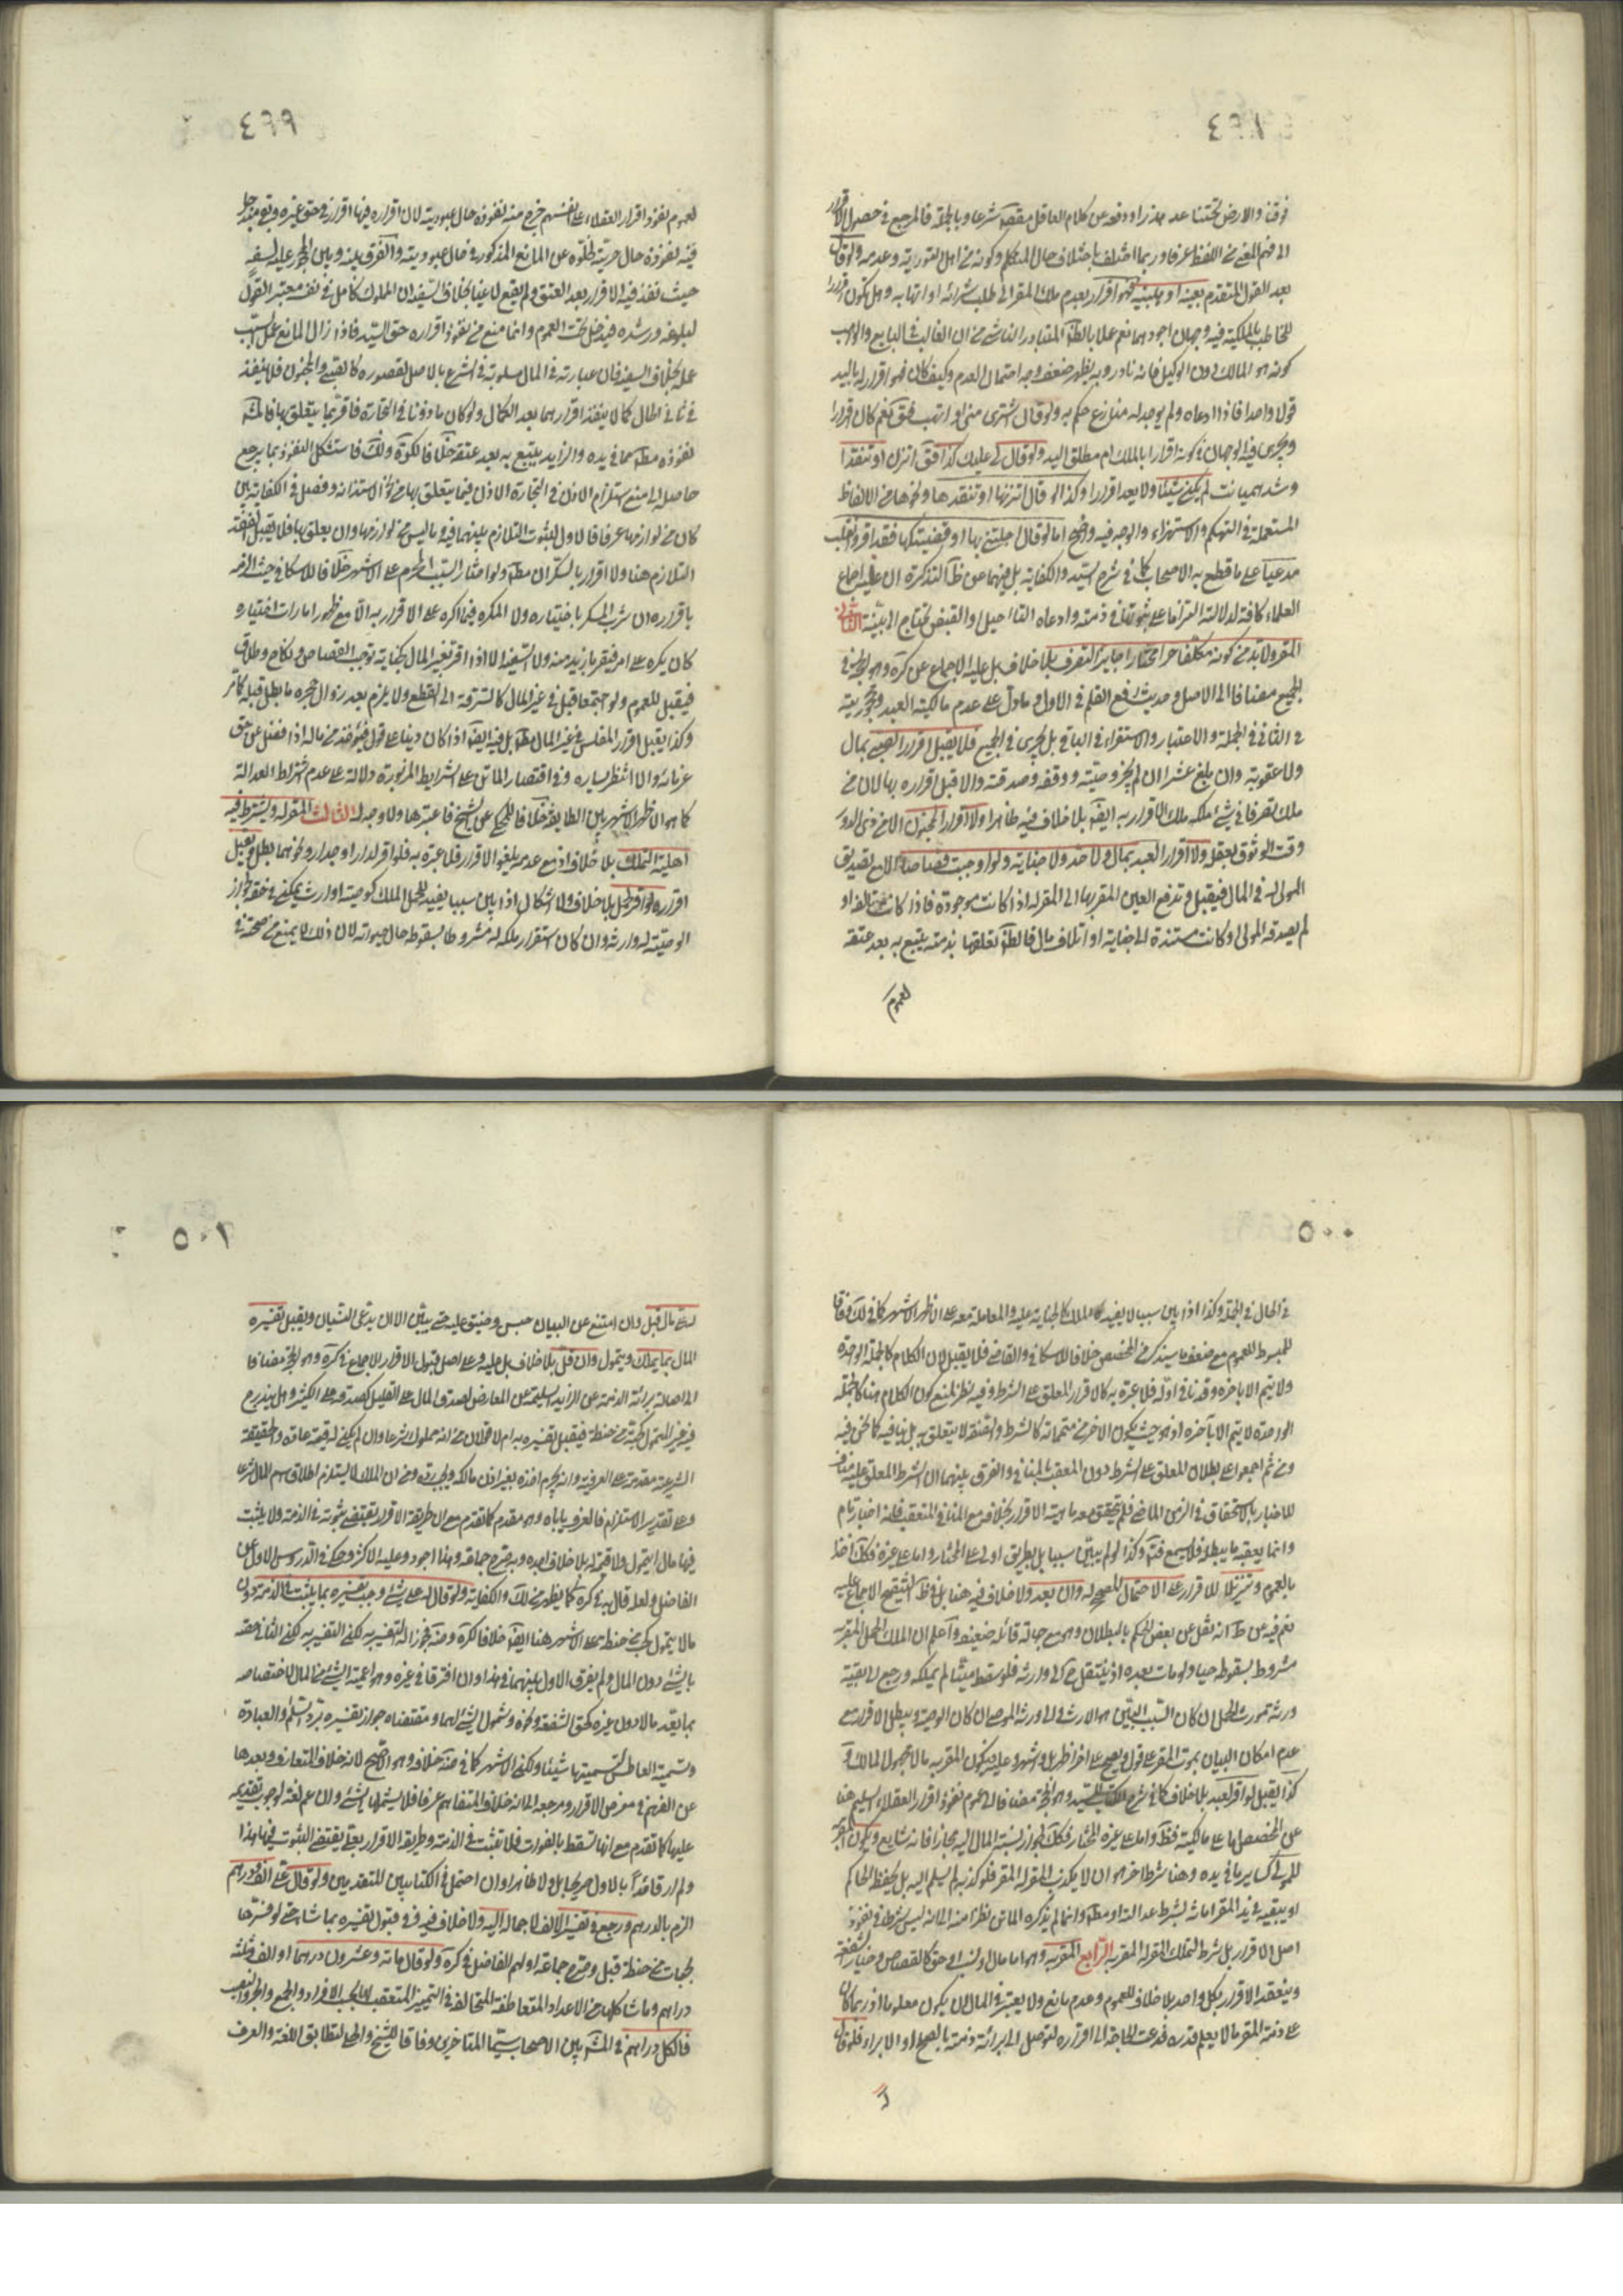 ٤٩٨
فوقنا والارض تحتنا عد هذرا ودفعه عن كلام العاقل مقصد شرعا وبالجملة فالمرجع في حصول الاقرار
الى فهم المعنى من اللفظ عرفا وربما اختلف باختلاف حال المتكلم وكونه من اهل التورية وعدمه ولو قال
بعد القول المتقدم بعينه او هبنيه فهو اقرار بعدم ملك المقر الى طلب شرائه او اتهابه وهل يكون اقرارا
للمخاطب بالملكية فيه وجهان اجودهما نعم عملا بالظاهر المتبادر الناشئ من ان الغالب في البايع والواهب
كونه هو المالك دون الوكيل فانه نادر وبه يظهر ضعف وجه احتمال العدم وكيف كان فهو اقرار له باليد
قولا واحدا فاذا ادعاه ولم يوجد له منازع حكم به ولو قال اشترى مني او اتهب فقال نعم كان اقرارا
ويجرى فيه الوجهان في كونه اقرارا بالملك ام مطلق اليد ولو قال لي عليك كذا فقال اتزن او تنقد ا
وشد هميانك لم يكن شيئا ولا يعد اقرارا وكذا لو قال اتزنها او تنقدها ونحوها من الالفاظ
المستعملة في التهكم والاستهزاء والوجه فيه واضح اما لو قال اجلتني بها او قضيتكها فقد اقر وانقلب
مدعيا على ما قطع به الاصحاب كما في شرح السيد والكفاية بل فيهما عن ظاهر التذكرة ان عليه اجماع
العلماء كافة لدلالته التزاما على ثبوتها في ذمته وادعاه التاجيل او القبض يحتاج الى بينة الثاني
المقر ولا بد من كونه مكلفا حرا مختارا جايز التصرف بلا خلاف بل عليه الاجماع عن كره وهو الحجة في
الجميع مضافا الى الاصل وحديث رفع القلم في الاول وما دل على عدم مالكية العبد ومحجوريته
في الثاني في الجملة والاعتبار والاستقراء في الباقي بل يجرى في الجميع فلا يقبل اقرار الصبي بمال
ولا عقوبة وان بلغ عشرا ان لم يجز وصيته ووقفه وصدقته والا قبل اقراره بها لان من
ملك تصرفا في شئ ملكه ملك الاقرار به ايضا بلا خلاف فيه ظاهرا ولا اقرار المجنون الا من ذى الدور
وقت الوثوق بعقله ولا اقرار العبد بمال ولا حد ولا جناية ولو اوجبت قصاصا الا مع تصديق
المولى له في المال فيقبل وتدفع العين المقر بها الى المقر له اذا كانت موجودة فاذا كانت تالفة او
لم يصدقه المولى او كانت مستندة الى جناية او اتلاف مال فالظاهر تعلقها بذمته يتبع به بعد عتقه
لعموم
٤٩٩
لعموم نفوذ اقرار العقلاء على انفسهم خرج منه نفوذه حال عبوديته لان اقراره فيها اقرار في حق غيره وبقى مندرجا
فيه نفوذه حال حريته لخلوه عن المانع المذكور في حال عبوديته والفرق بينه وبين المحجور عليه لسفه
حيث نفذ فيه الاقرار بعد العتق ولم يقع لاغيا بخلاف السفيه ان المملوك كامل في نفسه معتبر القول
لبلوغه ورشده فيدخل تحت العموم وانما منع من نفوذ اقراره حق السيد فاذا زال المانع عمل السبب
عمله بخلاف السفيه فان عبارته في المال مسلوبة في الشرع بالاصل لقصوره كالصبي والمجنون فلا ينفذ
في ثاني الحال كما لا ينفذ اقرارهما بعد الكمال ولو كان مأذونا في التجارة فاقر بما يتعلق بها فالمشهور
نفوذه مطلقا مما في يده والزايد يتبع به بعد عتقه خلافا للتذكرة ولك فاستشكل النفوذ بما يرجع
حاصله الى منع استلزام الاذن في التجارة الاذن فيما يتعلق بها من نحو الاستدانة وفصل في الكفاية بين
كان من لوازمها عرفا فالاول لثبوت التلازم بينهما فيه وما ليس من لوازمها وان يعلق بها فلا يقبل لفقد
التلازم هنا ولا اقرار بالسكران مطلقا ولو اختار السبب المحرم على الاشهر خلافا للاسكافي حيث الزمه
باقراره ان شرب المسكر باختياره ولا المكره فيما اكره على الاقرار به الا مع ظهور امارات اختياره
كان يكره على امر فيقر بازيد منه ولا السفيه الا اذا اقر بغير المال كجناية توجب القصاص ونكاح وطلاق
فيقبل للعموم ولو اجتمعا قبل في غير المال كالسرقة الى القطع ولا يلزم بعد زوال حجره ما بطل قبله كما مر
وكذا يقبل اقرار المفلس في غير المال مطلقا بل فيه ايضا اذا كان دينا على قول فيؤخذ من ماله اذا فضل عن حق
غرمائه والا انتظر يساره وفي اقتصار الماتن على الشرايط المزبورة دلالة على عدم اشتراط العدالة
كما هو الاظهر الاشهر بين الطايفة خلافا للمحكى عن الشيخ فاعتبرها ولا وجه له الثالث المقر له ويشترط فيه
اهلية التملك بلا خلاف اذ مع عدمه يلغو الاقرار فلا عبرة به فلو اقر لدار او جدار ونحوهما بطل ويقبل
اقراره لو اقر لحمل بلا خلاف ولا اشكال اذا بين سببا يفيد للحمل الملك كوصية او ارث يمكن في حقه لجواز
الوصية له وارثه وان كان استقرار ملكه له مشروطا بسقوطه حال حيوته لان ذلك لا يمنع من صحته في
٥٠٠
في الحال في الجملة وكذا اذا بين سببا لا يفيده كالملك كالجناية عليه والمعاملة معه على الاظهر الاشهر كما في لك وفاقا
للمبسوط للعموم مع ضعف ما سيذكر من المخصص خلافا للاسكافي والقاضي فلا يقبل لان الكلام كالجملة الواحدة
ولا يتم الا باخره وقد نافى اوله فلا عبرة به كالاقرار المعلق على الشرط وفيه نظر لمنع كون الكلام هنا كالجملة
الواحدة لا يتم الا بآخره اذ هو حيث يكون الاخر من متمماته كالشرط والصفة لا يتعلق به بل ينافيه كما نحن فيه
ومن ثم اجمعوا على بطلان المعلق على الشرط دون المعقب بالمنافي والفرق بينهما ان الشرط المعلق عليه مناف
للاخبار بالاستحقاق في الزمن الماضي فلم يتحقق معه ماهية الاقرار بخلافه مع المنافي المتعقب فانه اخبار تام
وانما يعقبه ما يبطله فلا يسمع فتأمل وكذا لو لم يبين سببا بل بطريق اولى على المختار واما على غيره فكك اخذا
بالعموم وتنزيلا للاقرار على الاحتمال المصحح له وان بعد ولا خلاف فيه هنا بل في ظاهر التنقيح الاجماع عليه
نعم فيه عن ط انه نقل عن بعض الحكم بالبطلان وهو مع جهالة قائله ضعيف واعلم ان الملك للحمل المقر به
مشروط بسقوطه حيا ولو مات بعده اذ ينتقل ح الى وارثه فلو سقط ميتا لم يملكه ورجع الى بقية
ورثة مورث الحمل ان كان السبب المبين هو الارث والى ورثة الموصى ان كان الوصية ويبطل الاقرار مع
عدم امكان البيان بموت المقر على قول ويصح على اخر اظهر واشهر وعليه فيكون المقر به مالا مجهول المالك و
كذا يقبل لو اقر لعبد بلا خلاف كما في شرح السيد وهو الحجة مضافا الى عموم نفوذ اقرار العقلاء السليم هنا
عن المخصص اما على مالكيته فظاهر واما على غيره المختار فكك لجواز نسبة المال اليه مجازا فانه شايع ويكون المقر به
للمولى كساير ما في يده وهنا شرط اخر هو ان لا يكذب المقر له المقر فلو كذبه لم يسلم اليه بل يحفظه الحاكم
او يبقيه في يد المقر امانة بشرط عدالته او مطلقا وانما لم يذكره الماتن نظرا منه الى انه ليس شرطا في نفوذ
اصل الاقرار بل شرط لتملك المقر له المقر به الرابع المقر به وهو اما مال او نسب او حق كالقصاص وخيار الشفعة
وينعقد الاقرار بكل واحد بلا خلاف للعموم وعدم مانع ولا يعتبر في المال ان يكون معلوما اذ ربما كان
على ذمة المقر ما لا يعلم قدره فدعت الحاجة الى اقراره ليتوصل الى برائة ذمته بالصلح او الابراء فلو قال
له
٥٠١
له على مال قبل وان امتنع عن البيان حبس وضيق عليه حتى يبين الا ان يدعى النسيان ويقبل تفسيره
المال بما يملك ويتمول وان قل بلا خلاف بل عليه وعلى اصل قبول الاقرار الاجماع في كره وهو الحجة مضافا
الى اصالة برائة الذمة عن الزايد السليمة عن المعارض لصدق المال على القليل كصدقه على الكثير وهل يندرج
فيه غير المتمول كحبة من حنطة فيقبل تفسيره به ام لا قولان من انه مملوك شرعا وان لم يكن له قيمة عادة والحقيقة
الشرعية مقدمة على العرفية وانه يحرم اخذه بغير اذن مالكه ويجب رده ومن ان الملك لا يستلزم اطلاق اسم المال شرعا
وعلى تقدير الاستلزام فالعرف ياباه وهو مقدم كما تقدم مع ان طريقة الاقرار يقتضى ثبوته في الذمة ولا يثبت
فيها مال لا يتمول ولا قيمة له بلا خلاف اجده وبه صرح جماعة وهذا اجود وعليه الاكثر وحكى في الدروس الاول عن
الفاضل ولعله قال به في كره كما يظهر من لك والكفاية ولو قال له على شئ وجب تفسيره بما يثبت في الذمة دون
مالا يتمول كحبة من حنطة على الاشهر هنا ايضا خلافا للتذكرة وضه فجوزا له التفسير به لكن الثاني خصه
بالشئ دون المال ولم يفرق الاول بينهما في هذا وان افترقا في غيره وهو اعمية الشئ من المال لاختصاصه
بما يعد مالا دون غيره كحق الشفعة ونحوه وشمول الشئ لهما ومقتضاه جواز تفسيره برد السلم والعيادة
وتسميت العاطس لتسميتها شيئا ولكن الاشهر كما في ضه خلافه وهو الاصح لانه خلاف المتعارف وبعدها
عن الفهم في معرض الاقرار ومرجعه الى انه خلاف المتفاهم عرفا فلا يشملها شئ وان عم لغة لوجوب تقديمه
عليها كما تقدم مع انها تسقط بالفوات فلا تثبت في الذمة وطريقة الاقرار يقتضى الثبوت فيها هذا
ولم ار قائلا بالاول صريحا بل ولا ظاهرا وان احتمل في الكتابين المتقدمين ولو قال على الف ودرهم
الزم بالدرهم ورجع في تفسير الالف لاجماله اليه ولا خلاف فيه وفي قبول تفسيره بما شاء حتى لو فسرها
بحبات من حنطة قبل وصرح جماعة اولهم الفاضل في كره ولو قال مائة وعشرون درهما او الف وثلثة
دراهم وما شاكلها من الاعداد المتعاطفة المتخالفة في التمييز المتعقب لها بحسب الافراد والجمع والجر والنصب
فالكل دراهم في المشهور بين الاصحاب سيما المتاخرين وفاقا للشيخ والحلي لتطابق اللغة والعرف